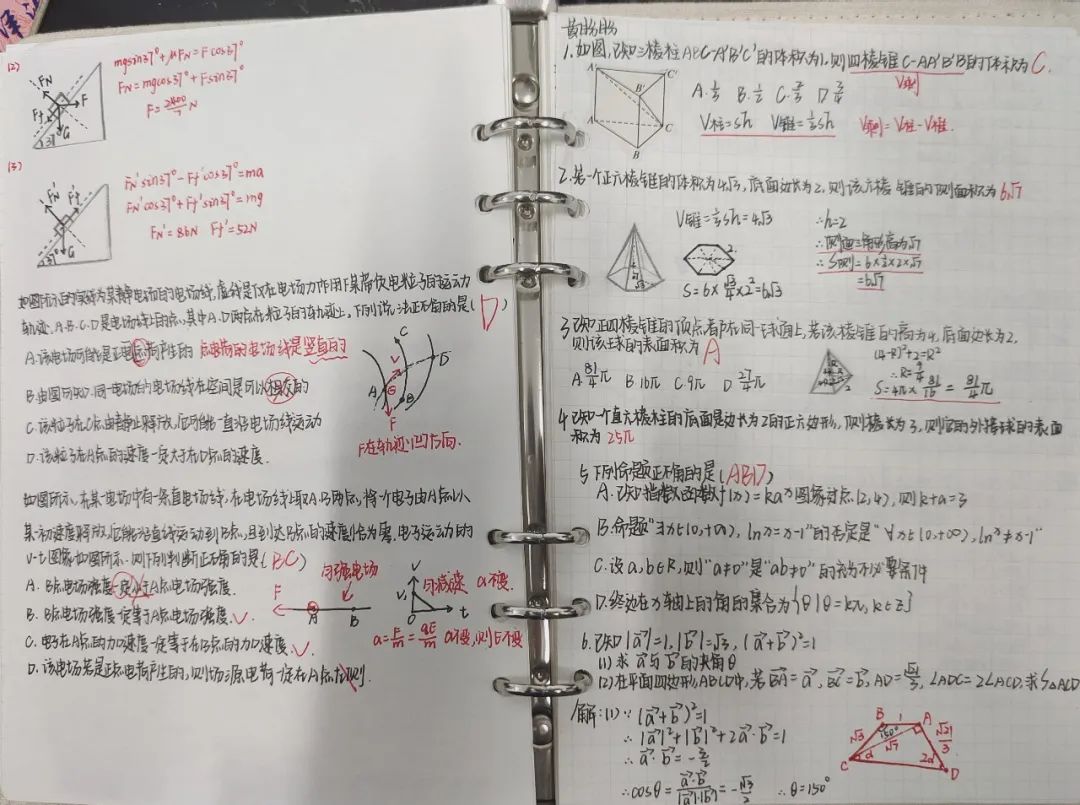 (2)
mgsin37°+μFN=Fcos37°
FN=mgcos37°+Fsin37°
F=2400/7 N
FN
F
Ff
G
37°
(3)
FN'sin37°-Ff'cos37°=ma
FN'cos37°+Ff'sin37°=mg
FN'=86N Ff'=52N
FN'
Ff'
G
37°
如图所示的实线为某静电场的电场线,虚线是仅在电场力作用下某带负电粒子的运动
轨迹,A.B.C.D是电场线上的点,其中A.D两点在粒子的轨迹上,下列说法正确的是(D)
A.该电场可能是正点电荷产生的 点电荷的电场线是竖直的
B.由图可知,同一电场的电场线在空间是可以相交的
C.该粒子在C点由静止释放,它可能一直沿电场线运动
D.该粒子在A点的速度一定大于在D点的速度.
C
V
D
A
B
F
F在轨迹凹方向.
如图所示,在某电场中有一条直电场线,在电场线上取A.B两点,将一个电子由A点以
某一初速度释放,它能沿直线运动到B点,且到达B点的速度恰为零,电子运动的
v-t图像如图所示.则下列判断正确的是(BC)
A.B点电场强度一定小于A点电场强度.
B.B点电场强度一定等于A点电场强度.✓
C.电子在A点的加速度一定等于在B点的加速度.✓
D.该电场若是正点电荷产生的,则场源电荷一定在A点左侧.
F
A
B
匀强电场
V
V₁
O
t
匀减速 a不变
a=F/m=qE/m a不变,则E不变
黄盼盼
1.如图,已知三棱柱ABC-A'B'C'的体积为1,则四棱锥C-AA'B'B的体积为C.
V剩
A.1/3 B.1/2 C.2/3 D.3/4
V柱=Sh V锥=1/3Sh V剩=V柱-V锥.
A'
C'
B'
A
C
B
2.若一个正六棱锥的体积为4√3,底面边长为2,则该六棱锥的侧面积为6√7
V锥=1/3Sh=4√3
∴h=2
∴侧面三角形高为√7
∴S侧=6×1/2×2×√7
=6√7
2
S=6×√3/4×2²=6√3
3.已知正四棱锥的顶点都在同一球面上,若该棱锥的高为4,底面边长为2,
则该球的表面积为A
A.81/4π B.16π C.9π D.27/4π
(4-R)²+2=R²
∴R=9/4
S=4π×81/16=81/4π
2
4.已知一个直六棱柱的底面是边长为2的正六边形,侧棱长为3,则它的外接球的表面
积为25π
5.下列命题正确的是(ABD)
A.已知指数函数f(x)=kaˣ图象过点(2,4),则k+a=3
B.命题"∃x∈(0,+∞),lnx=x-1"的否定是"∀x∈(0,+∞),lnx≠x-1"
C.设a,b∈R,则"a≠0"是"ab≠0"的充分不必要条件
D.终边在x轴上的角的集合为{θ|θ=kπ,k∈Z}
6.已知|a⃗|=1,|b⃗|=√3,(a⃗+b⃗)²=1
(1)求a⃗与b⃗的夹角θ
(2)在平面四边形ABCD中,若BA⃗=a⃗,BC⃗=b⃗,AD=√21/3,∠ADC=2∠ACD,求S△ACD
解:(1)∵(a⃗+b⃗)²=1
∴|a⃗|²+|b⃗|²+2a⃗·b⃗=1
∴a⃗·b⃗=-3/2
∴cosθ=a⃗·b⃗/|a⃗|·|b⃗|=-√3/2 ∴θ=150°
B
1
A
√3
150°
√7
√21/3
C
α
2α
D